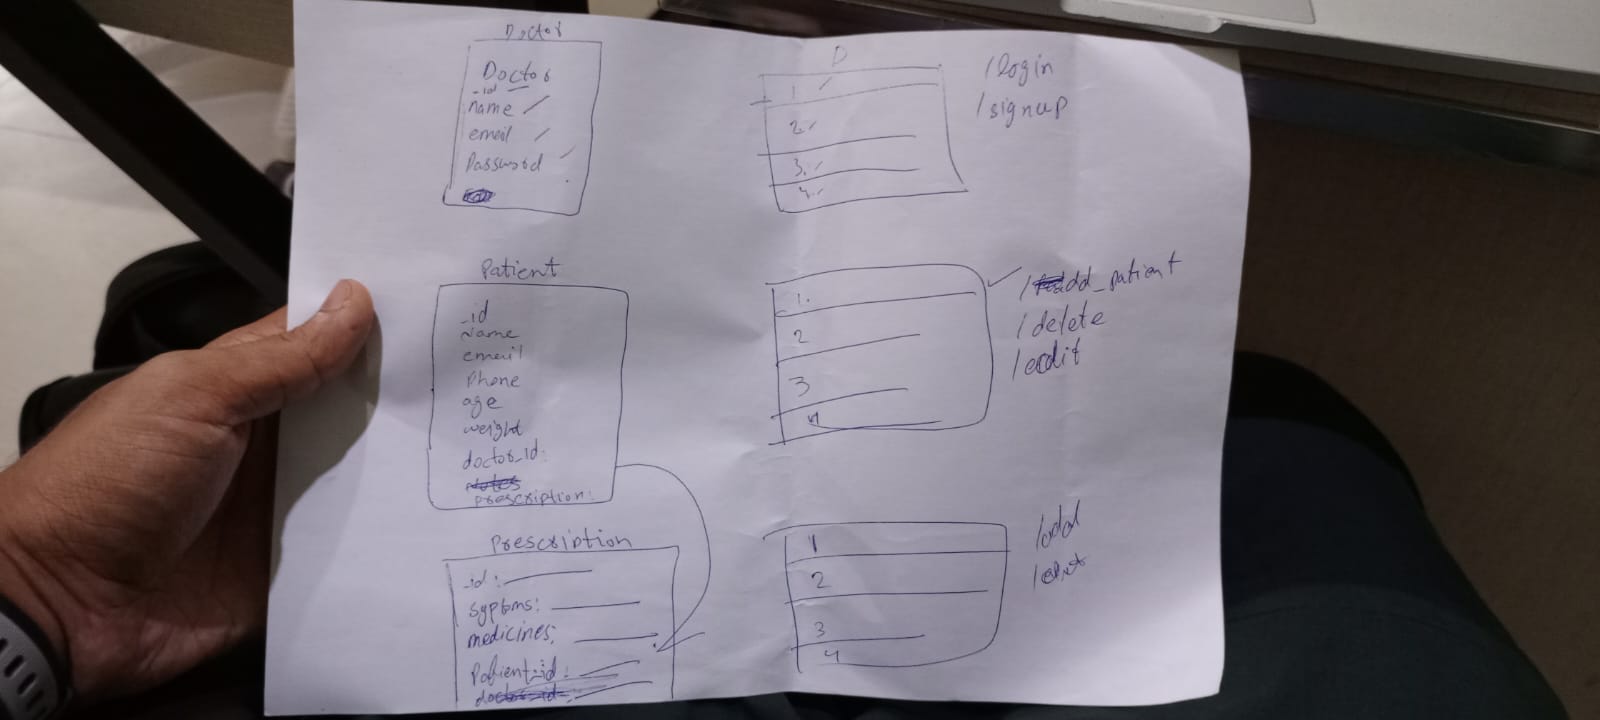 Doctor
Doctor
_id
name
email
Password
D
1
2.
3.
4.
/login
/signup
Patient
_id
Name
email
Phone
age
weight
doctor_id:
notes
prescription:
1.
2
3
4
/add_patient
/delete
/edit
Prescription
_id:
Syptoms:
medicines:
Patient_id:
doctor_id:
1
2
3
4
/add